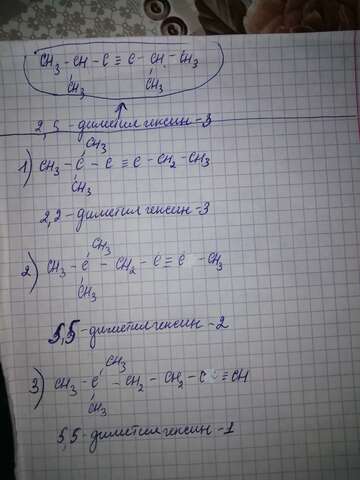 CH₃ - CH - C ≡ C - CH - CH₃
CH₃ CH₃
2,5-диметилгексин-3
CH₃
1) CH₃ - C - C ≡ C - CH₂ - CH₃
CH₃
2,2-диметилгексин-3
CH₃
2) CH₃ - C - CH₂ - C ≡ C - CH₃
CH₃
5,5-диметилгексин-2
CH₃
3) CH₃ - C - CH₂ - CH₂ - C ≡ CH
CH₃
5,5-диметилгексин-1